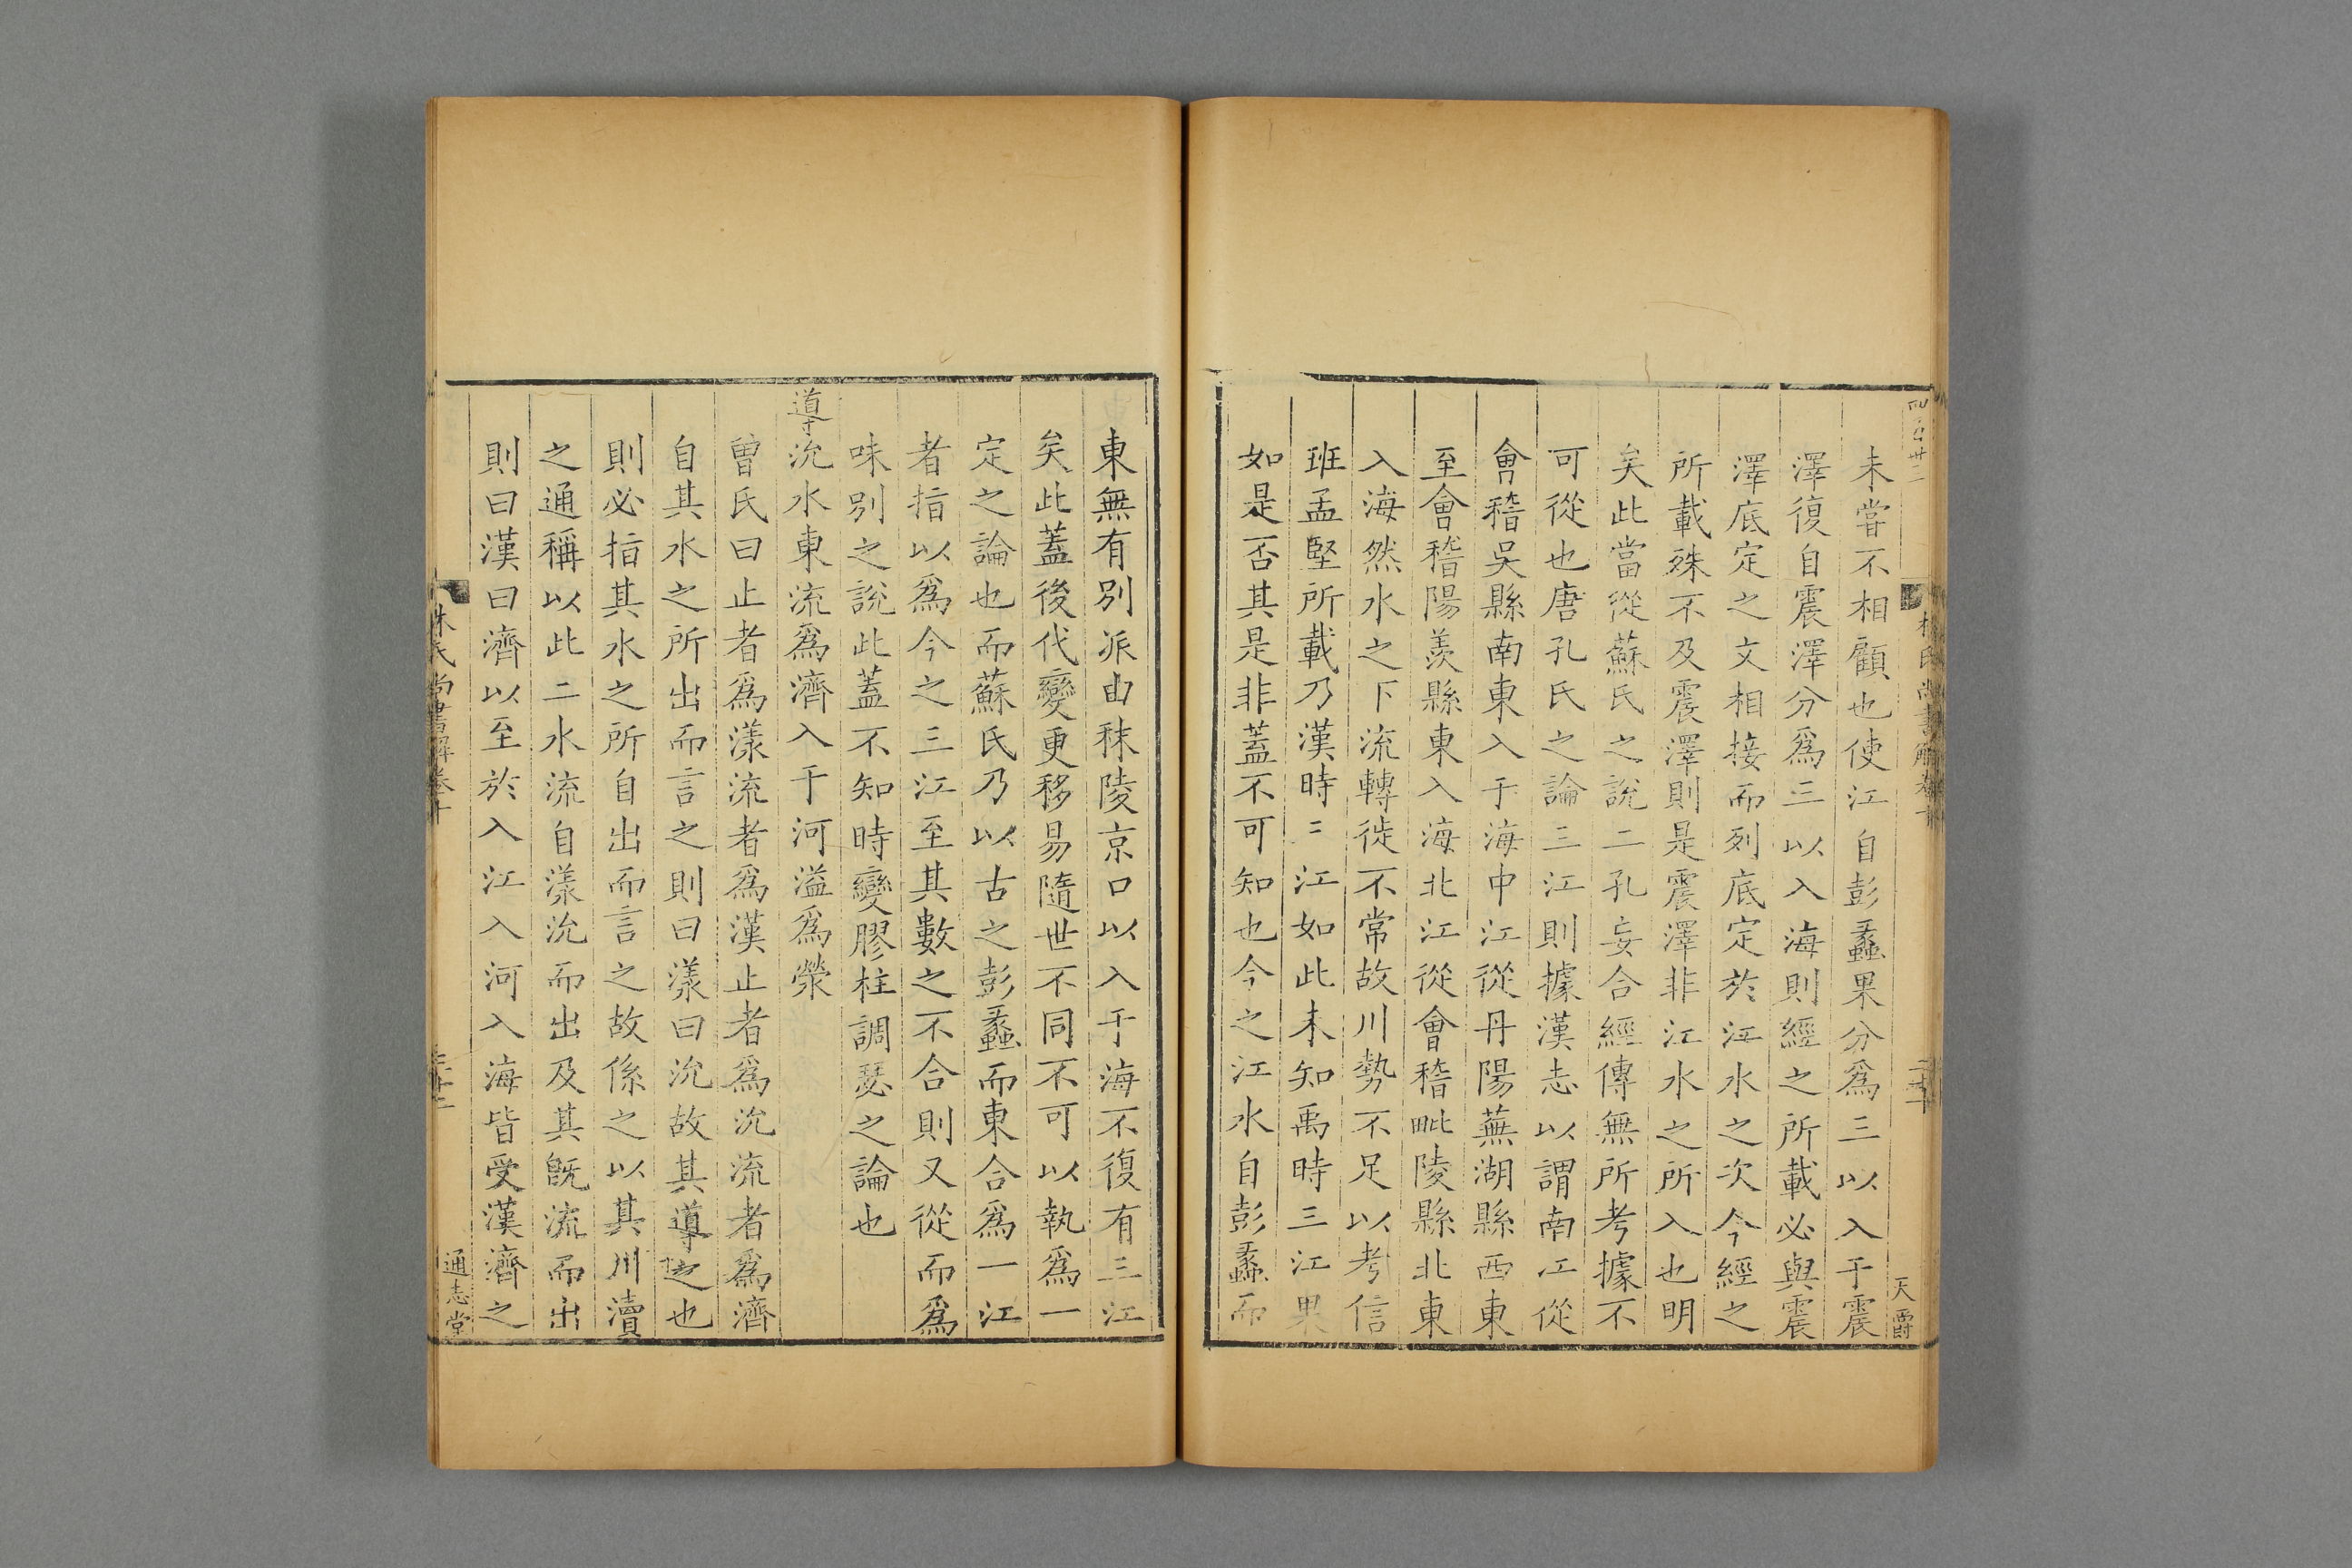 未嘗不相顧也使江自彭蠡果分爲三以入于震
澤復自震澤分爲三以入海則經之所載必與震
澤底定之文相接而列底定於江水之次今經之
所載殊不及震澤則是震澤非江水之所入也明
矣此當從蘇氏之說二孔妄合經傳無所考據不
可從也唐孔氏之論三江則據漢志以謂南江從
會稽吳縣南東入于海中江從丹陽蕪湖縣西東
至會稽陽羨縣東入海北江從會稽毗陵縣北東
入海然水之下流轉徙不常故川勢不足以考信
班孟堅所載乃漢時二江如此未知禹時三江果
如是否其是非蓋不可知也今之江水自彭蠡而
天爵
東無有別派由秣陵京口以入于海不復有三江
矣此蓋後代變更移易隨世不同不可以執爲一
定之論也而蘇氏乃以古之彭蠡而東合爲一江
者指以爲今之三江至其數之不合則又從而爲
味別之說此蓋不知時變膠柱調瑟之論也
導沇水東流爲濟入于河溢爲滎
曾氏曰止者爲漾流者爲漢止者爲沇流者爲濟
自其水之所出而言之則曰漾曰沇故其導之也
則必指其水之所自出而言之故係之以其川瀆
之通稱以此二水流自漾沇而出及其既流而出
則曰漢曰濟以至於入江入河入海皆受漢濟之
林氏尚書解卷十
通志堂